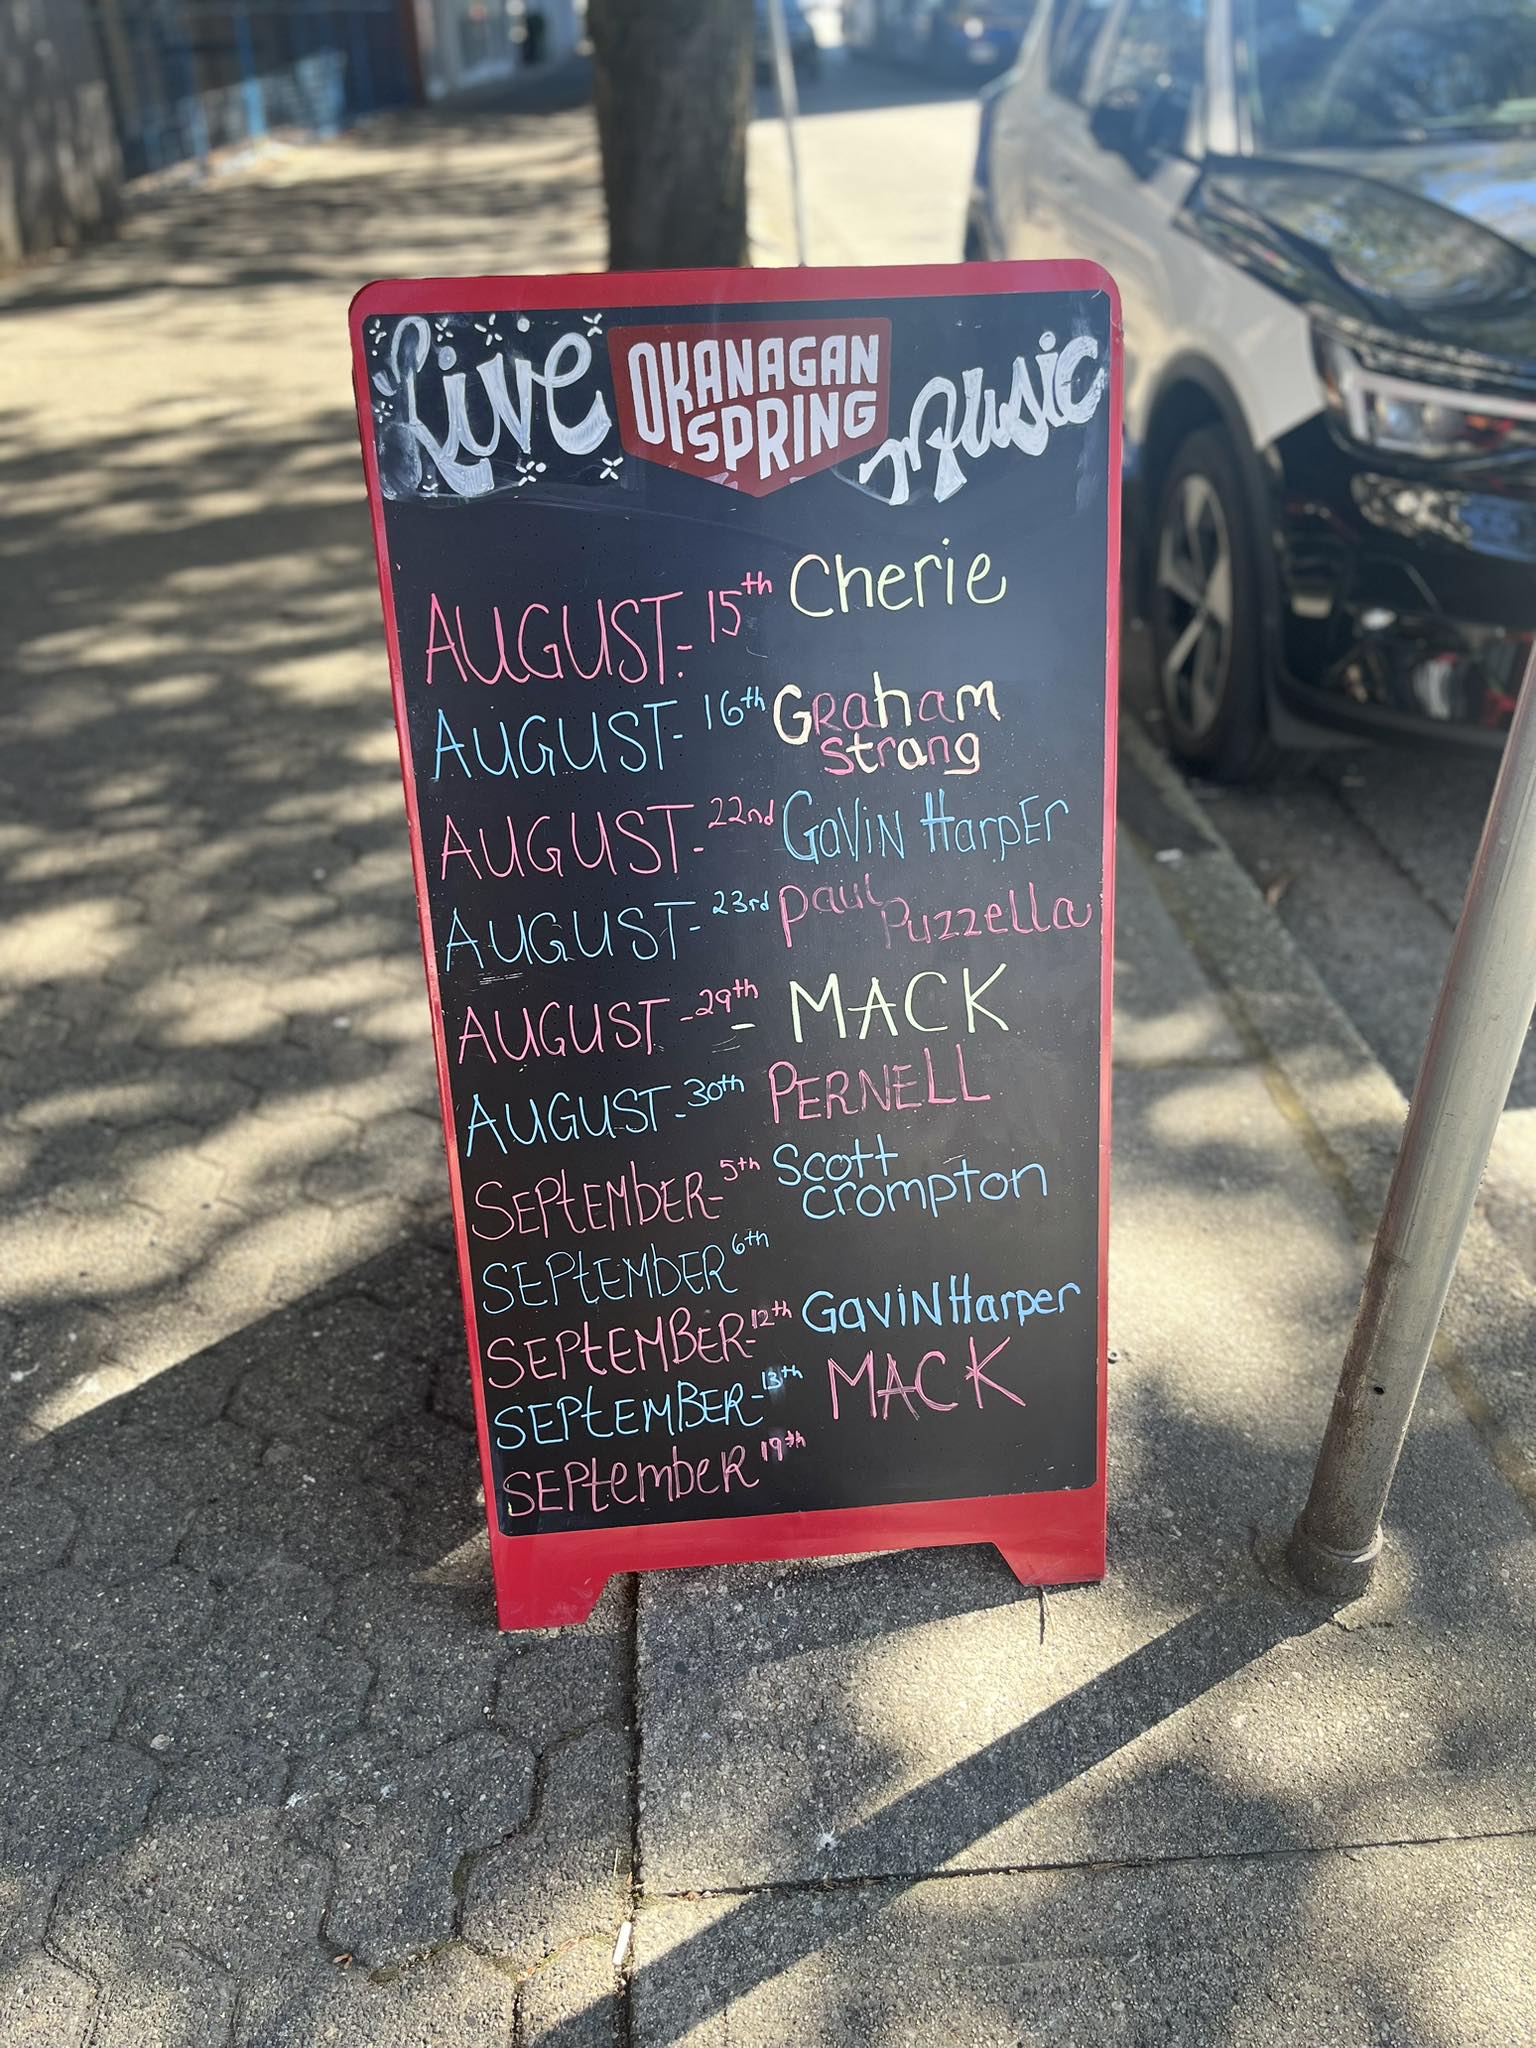 Live OKANAGAN SPRING Music
AUGUST- 15th Cherie
AUGUST- 16th Graham Strang
AUGUST- 22nd GaViN HarpEr
AUGUST- 23rd Paul Puzzella
AUGUST -29th- MACK
AUGUST- 30th PERNELL
SEPtEMBER- 5th Scott Crompton
SEPtEMbER 6th
SEPtEMBER- 12th GaviN Harper
SEPtEMBER- 13th MACK
SEPtembeR 19th